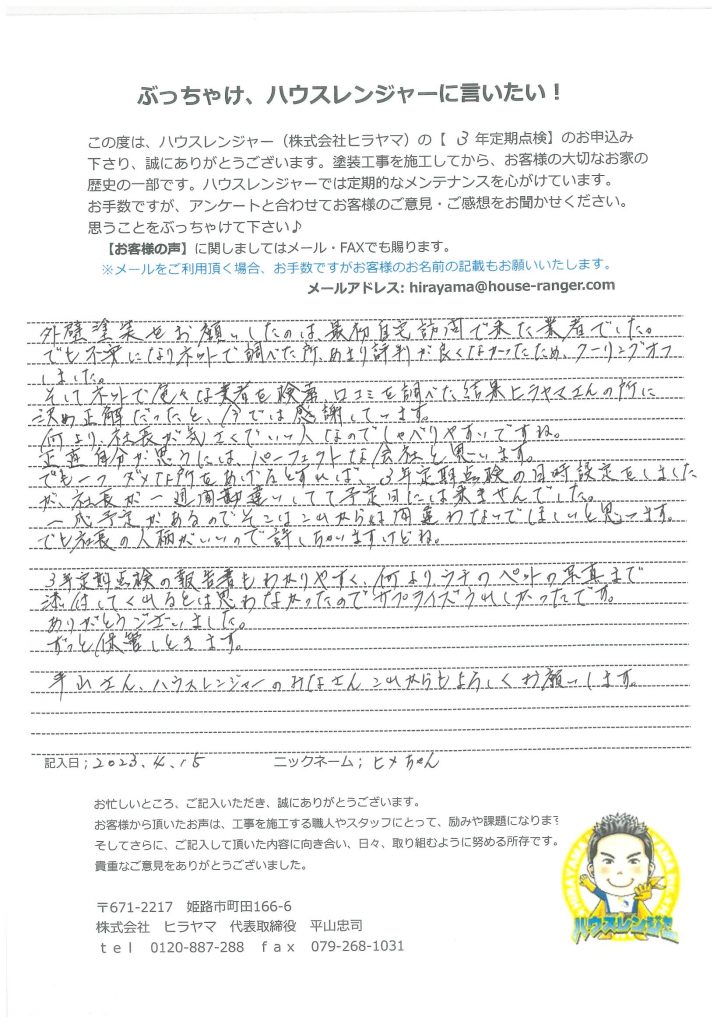 ぶっちゃけ、ハウスレンジャーに言いたい！
この度は、ハウスレンジャー（株式会社ヒラヤマ）の【 3 年定期点検】のお申込み
下さり、誠にありがとうございます。塗装工事を施工してから、お客様の大切なお家の
歴史の一部です。ハウスレンジャーでは定期的なメンテナンスを心がけています。
お手数ですが、アンケートと合わせてお客様のご意見・ご感想をお聞かせください。
思うことをぶっちゃけて下さい♪
【お客様の声】に関しましてはメール・FAXでも賜ります。
※メールをご利用頂く場合、お手数ですがお客様のお名前の記載もお願いいたします。
メールアドレス: hirayama@house-ranger.com
外壁塗装をお願いしたのは、最初自宅訪問で来た業者でした。
でも不安になりネットで調べた所、あまり評判が良くなかったため、クーリングオフ
しました。
そしてネットで色々な業者を検索、口コミを調べた結果ヒラヤマさんの所に
決め正解だったと、今では感謝しています。
何より、社長が気さくでいい人なのでしゃべりやすいですね。
正直自分が思うには、パーフェクトな会社と思います。
でも一つ ダメな所をあげるとすれば、3年定期点検の日時設定をしました
が、社長が一週間勘違いしてて予定日には来ませんでした。
一応予定があるのでそこはこれからは間違わないでほしいと思ってます。
でも社長の人柄がいいので許しちゃいますけどね。
3年定期点検の報告書もわかりやすく、何よりウチのペットの写真まで
添付してくれるとは思わなかったのでサプライズうれしかったです。
ありがとうございました。
ずっと保管しときます。
平山さん、ハウスレンジャーのみなさん これからもよろしくお願いします。
記入日；2023.4.15 ニックネーム；ヒメちゃん
お忙しいところ、ご記入いただき、誠にありがとうございます。
お客様から頂いたお声は、工事を施工する職人やスタッフにとって、励みや課題になります
そしてさらに、ご記入して頂いた内容に向き合い、日々、取り組むように努める所存です。
貴重なご意見をありがとうございました。
〒671-2217 姫路市町田166-6
株式会社 ヒラヤマ 代表取締役 平山忠司
ｔｅｌ 0120-887-288 ｆａｘ 079-268-1031
ハウスレンジャー